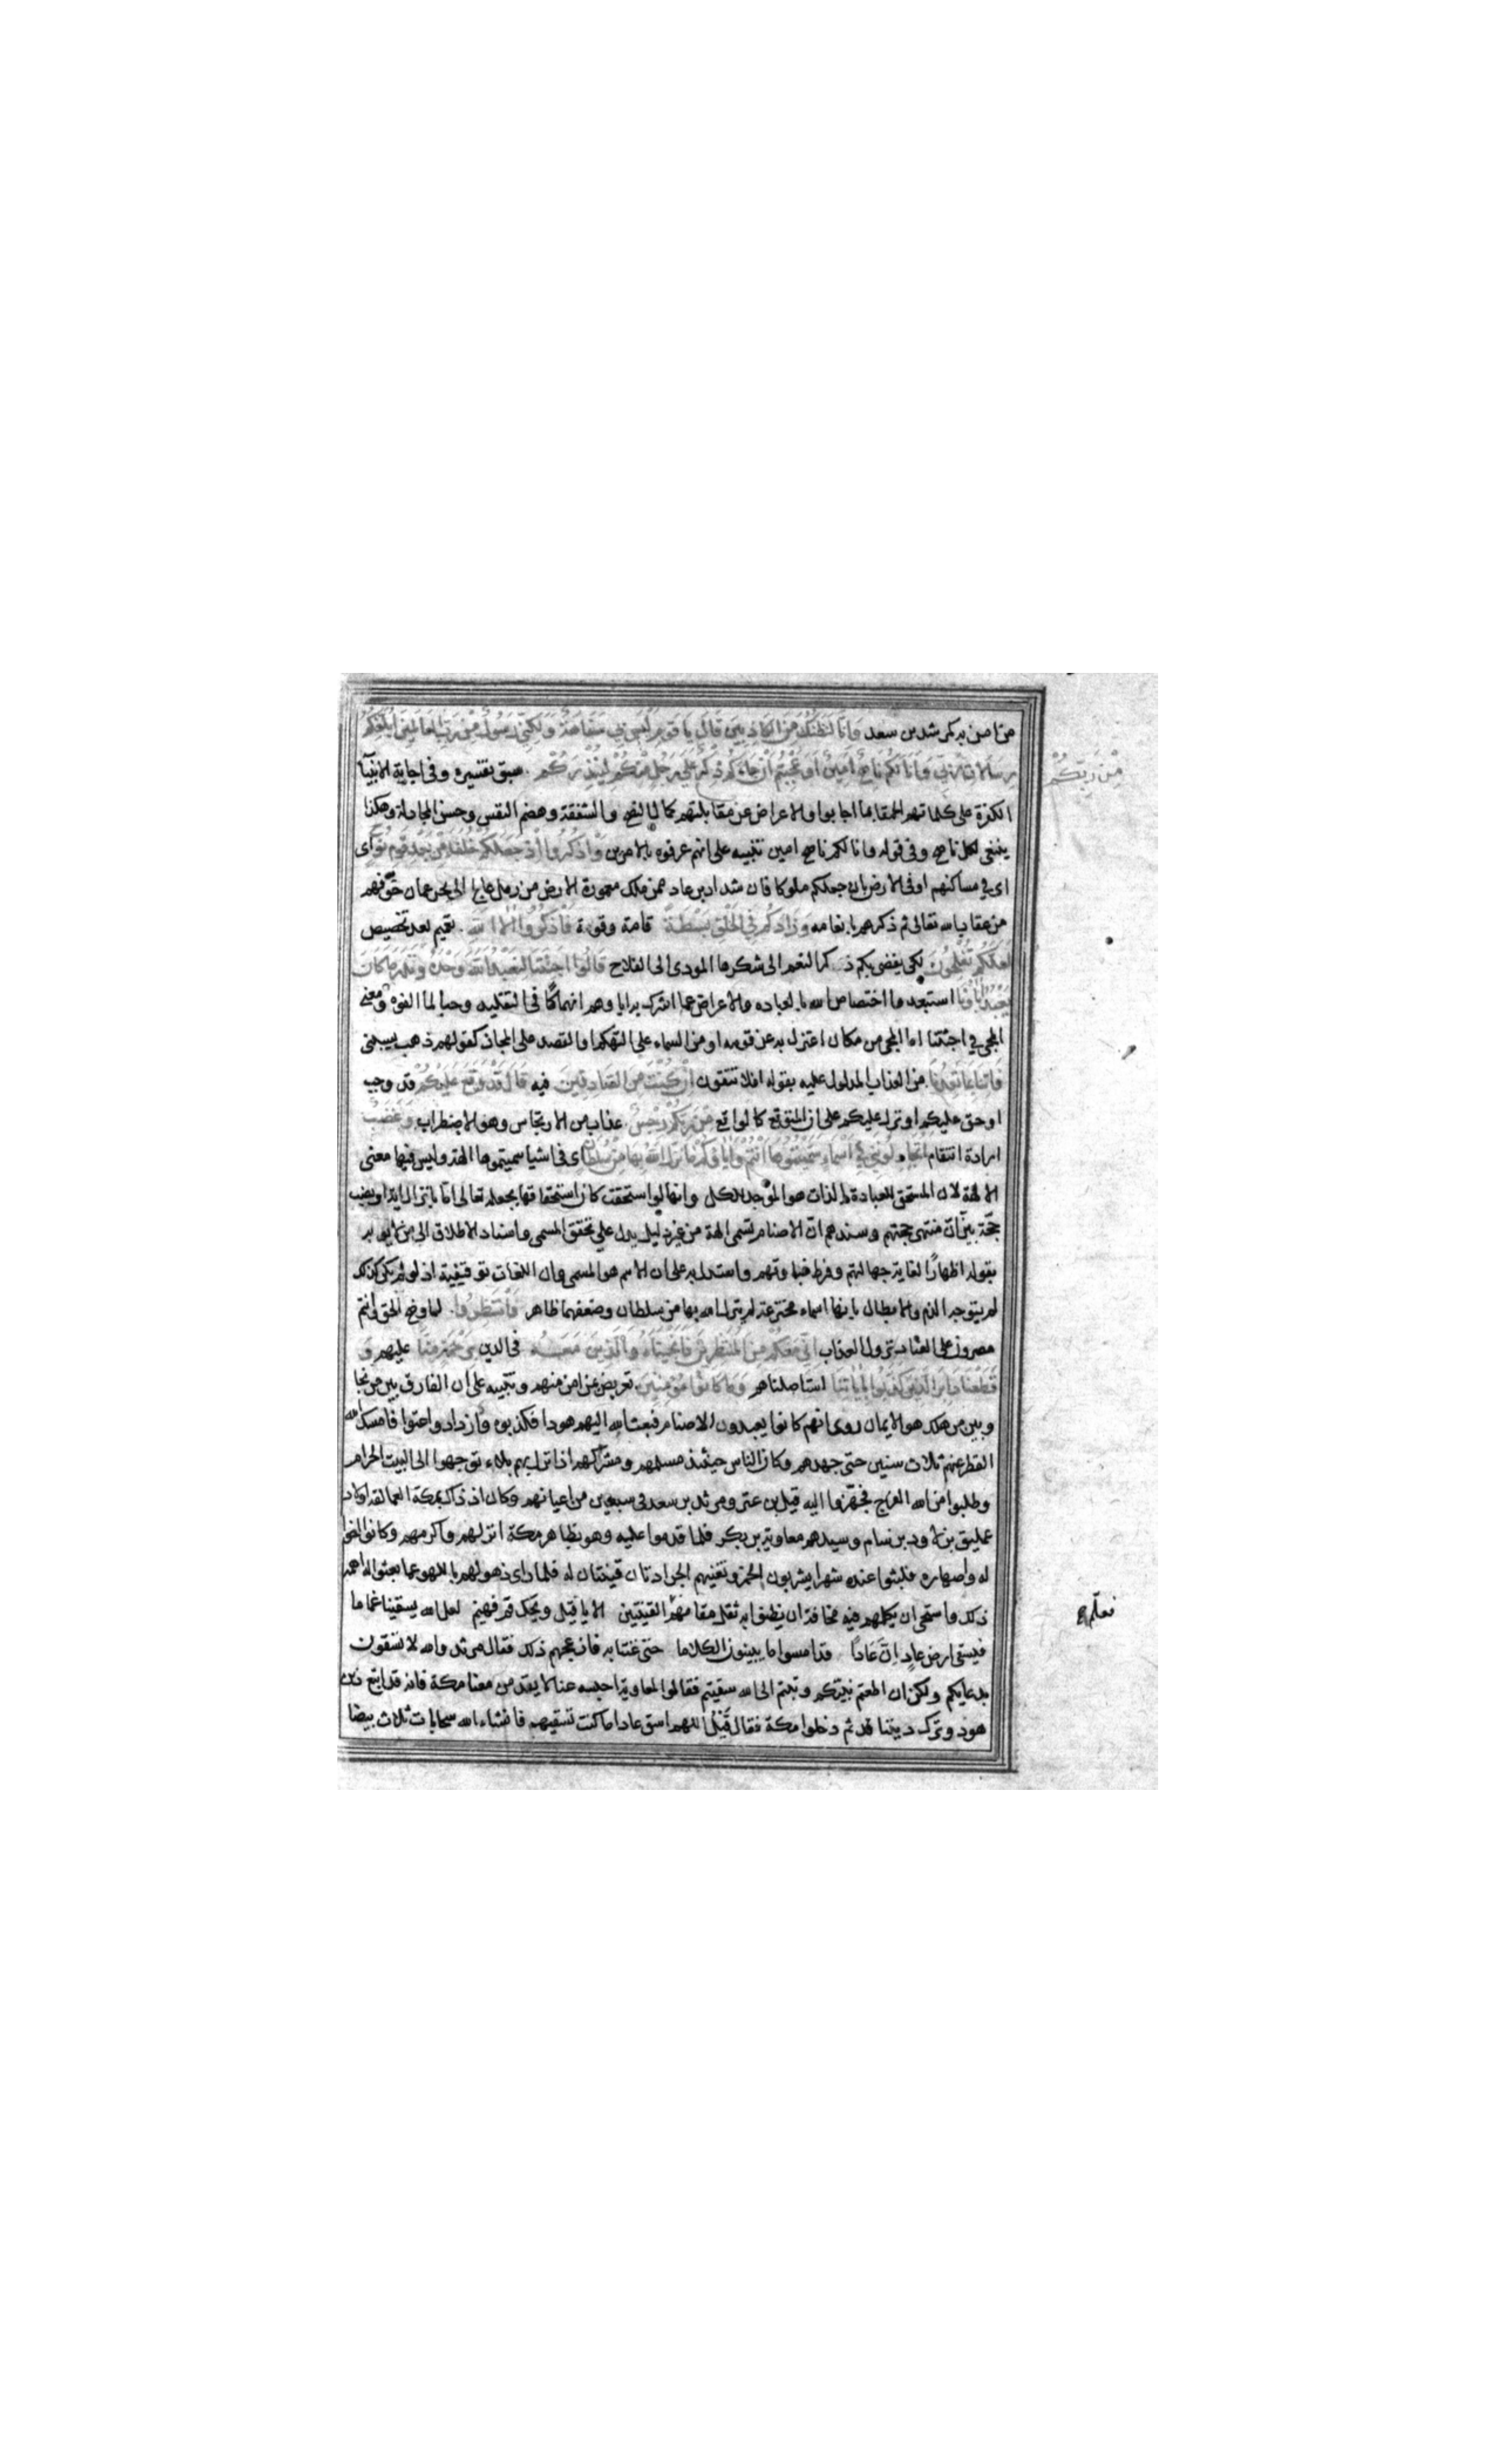 من امن به كمرثد بن سعد وانا لنظنك من الكاذبين قال يا قوم ليس بي سفاهة ولكني رسول من رب العالمين ابلغكم
رسالات ربي وانا لكم ناصح امين اوعجبتم ان جاءكم ذكر على رجل منكم لينذركم سبق تفسيره وفي اجابة الانبيا
من ربكم
الكفرة على كلماتهم الحمقا بما اجابوا والاعراض عن مقابلتهم كمال النصح والشفقة وهضم النفس وحسن المجادلة وهكذا
ينبغي لكل ناصح وفي قوله وانا لكم ناصح امين تنبيه على انهم عرفوه بالامرين واذكروا اذ جعلكم خلفاء من بعد قوم نوح اي
اي في مساكنهم او في الارض بان جعلكم ملوكا فان شداد بن عاد ممن ملك معمورة الارض من رمل عالج الى بحر عمان خوفهم
من عقاب الله تعالى ثم ذكرهم بانعامه وزادكم في الخلق بسطة قامة وقوة فاذكروا الاء الله تعميم بعد تخصيص
لعلكم تفلحون لكي يفضي بكم ذكر النعم الى شكرها المودى الى الفلاح قالوا اجئتنا لنعبد الله وحده ونذر ما كان
يعبد اباؤنا استبعدوا اختصاص الله بالعباده والاعراض عما اشرك به اباوهم انهماكا في التقليد وحبا لما الفوه ومعنى
المجي في اجئتنا اما المجي من مكان اعتزل به عن قومه او من السماء على التهكم او القصد على المجاز كقولهم ذهب يسبني
فاتنا بما تعدنا من العذاب المدلول عليه بقوله افلا تتقون ان كنت من الصادقين فيه قال قد وقع عليكم قد وجب
او حق عليكم او نزل عليكم على ان المتوقع كالواقع من ربكم رجس عذاب من الارتجاس وهو الاضطراب وغضب
ارادة انتقام اتجادلونني في اسماء سميتموها انتم واباؤكم ما نزل الله بها من سلطان اي في اشيا سميتموها الهة وليس فيها معنى
الالهة لان المستحق للعبادة بالذات هو الموجد للكل وانها لو استحقت كان استحقاقها بجعله تعالى اما بانزال اية او بنصب
حجة بين ان منتهى حجتهم وسندهم ان الاصنام تسمى الهة من غير دليل يدل على تحقق المسمى واسناد الاطلاق الى من لا يوبه
بقوله اظهارا لغاية جهالتهم وفرط غباوتهم واستدل به على ان الاسم هو المسمى وان اللغات توقيفية اذ لو لم يكن كذلك
لم يتوجه الذم والابطال بانها اسماء مخترعة لم ينزل الله بها من سلطان وضعفهما ظاهر فانتظروا لما وضح الحق وانتم
مصرون على العناد نزول العذاب اني معكم من المنتظرين فانجيناه والذين معه في الدين برحمة منا عليهم و
قطعنا دابر الذين كذبوا باياتنا استاصلناهم وما كانوا مؤمنين تعريض عن امن منهم وتنبيه على ان الفارق بين من نجا
وبين من هلك هو الايمان روى انهم كانوا يعبدون الاصنام فبعث الله اليهم هودا فكذبوه وازدادوا عتوا فامسك الله
القطر عنهم ثلاث سنين حتى جهدهم وكان الناس حينئذ مسلمهم ومشركهم اذا نزل بهم بلاء توجهوا الى البيت الحرام
وطلبوا من الله الفرج فجهزوا اليه قيل بن عتر ومرثد بن سعد في سبعين من اعيانهم وكان اذ ذاك بمكة العمالقة اولاد
عمليق بن لاود بن سام وسيدهم معاوية بن بكر فلما قدموا عليه وهو بظاهر مكة انزلهم واكرمهم وكانوا اخوا
له واصهاره فلبثوا عنده شهرا يشربون الخمر وتغنيهم الجرادتان قينتان له فلما راى ذهولهم باللهو عما بعثوا له اهمه
ذلك واستحى ان يكلمهم فيه مخافة ان يظنوا به ثقل مقامهم القينتين الا يا قيل ويحك قم فهينم لعل الله يسقينا غماما
فعلم
فيسقى ارض عاد ان عادا قد امسوا ما يبينون الكلاما حتى غنتا به فازعجهم ذلك فقال مرثد والله لا تسقون
بدعايكم ولكن ان اطعتم نبيكم وتبتم الى الله سقيتم فقالوا لمعاوية احبسه عنا لا يقدمن معنا مكة فانه قد اتبع دين
هود وترك ديننا قد ثم دخلوا مكة فقال قيل اللهم اسق عادا ما كنت تسقيهم فانشاء الله سحابات ثلاث بيضا